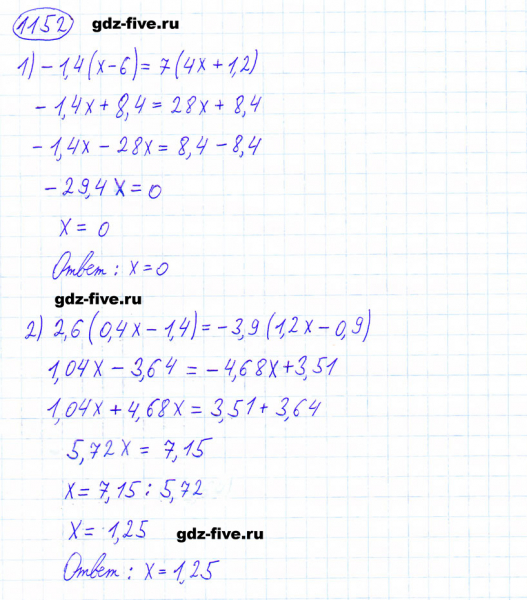 1152 gdz-five.ru
1) -1,4(x-6) = 7(4x+1,2)
-1,4x + 8,4 = 28x + 8,4
-1,4x - 28x = 8,4 - 8,4
-29,4x = 0
x = 0
Ответ: x=0
gdz-five.ru
2) 2,6(0,4x-1,4) = -3,9(1,2x-0,9)
1,04x - 3,64 = -4,68x+3,51
1,04x + 4,68x = 3,51 + 3,64
5,72x = 7,15
x = 7,15 : 5,72
x = 1,25 gdz-five.ru
Ответ: x = 1,25